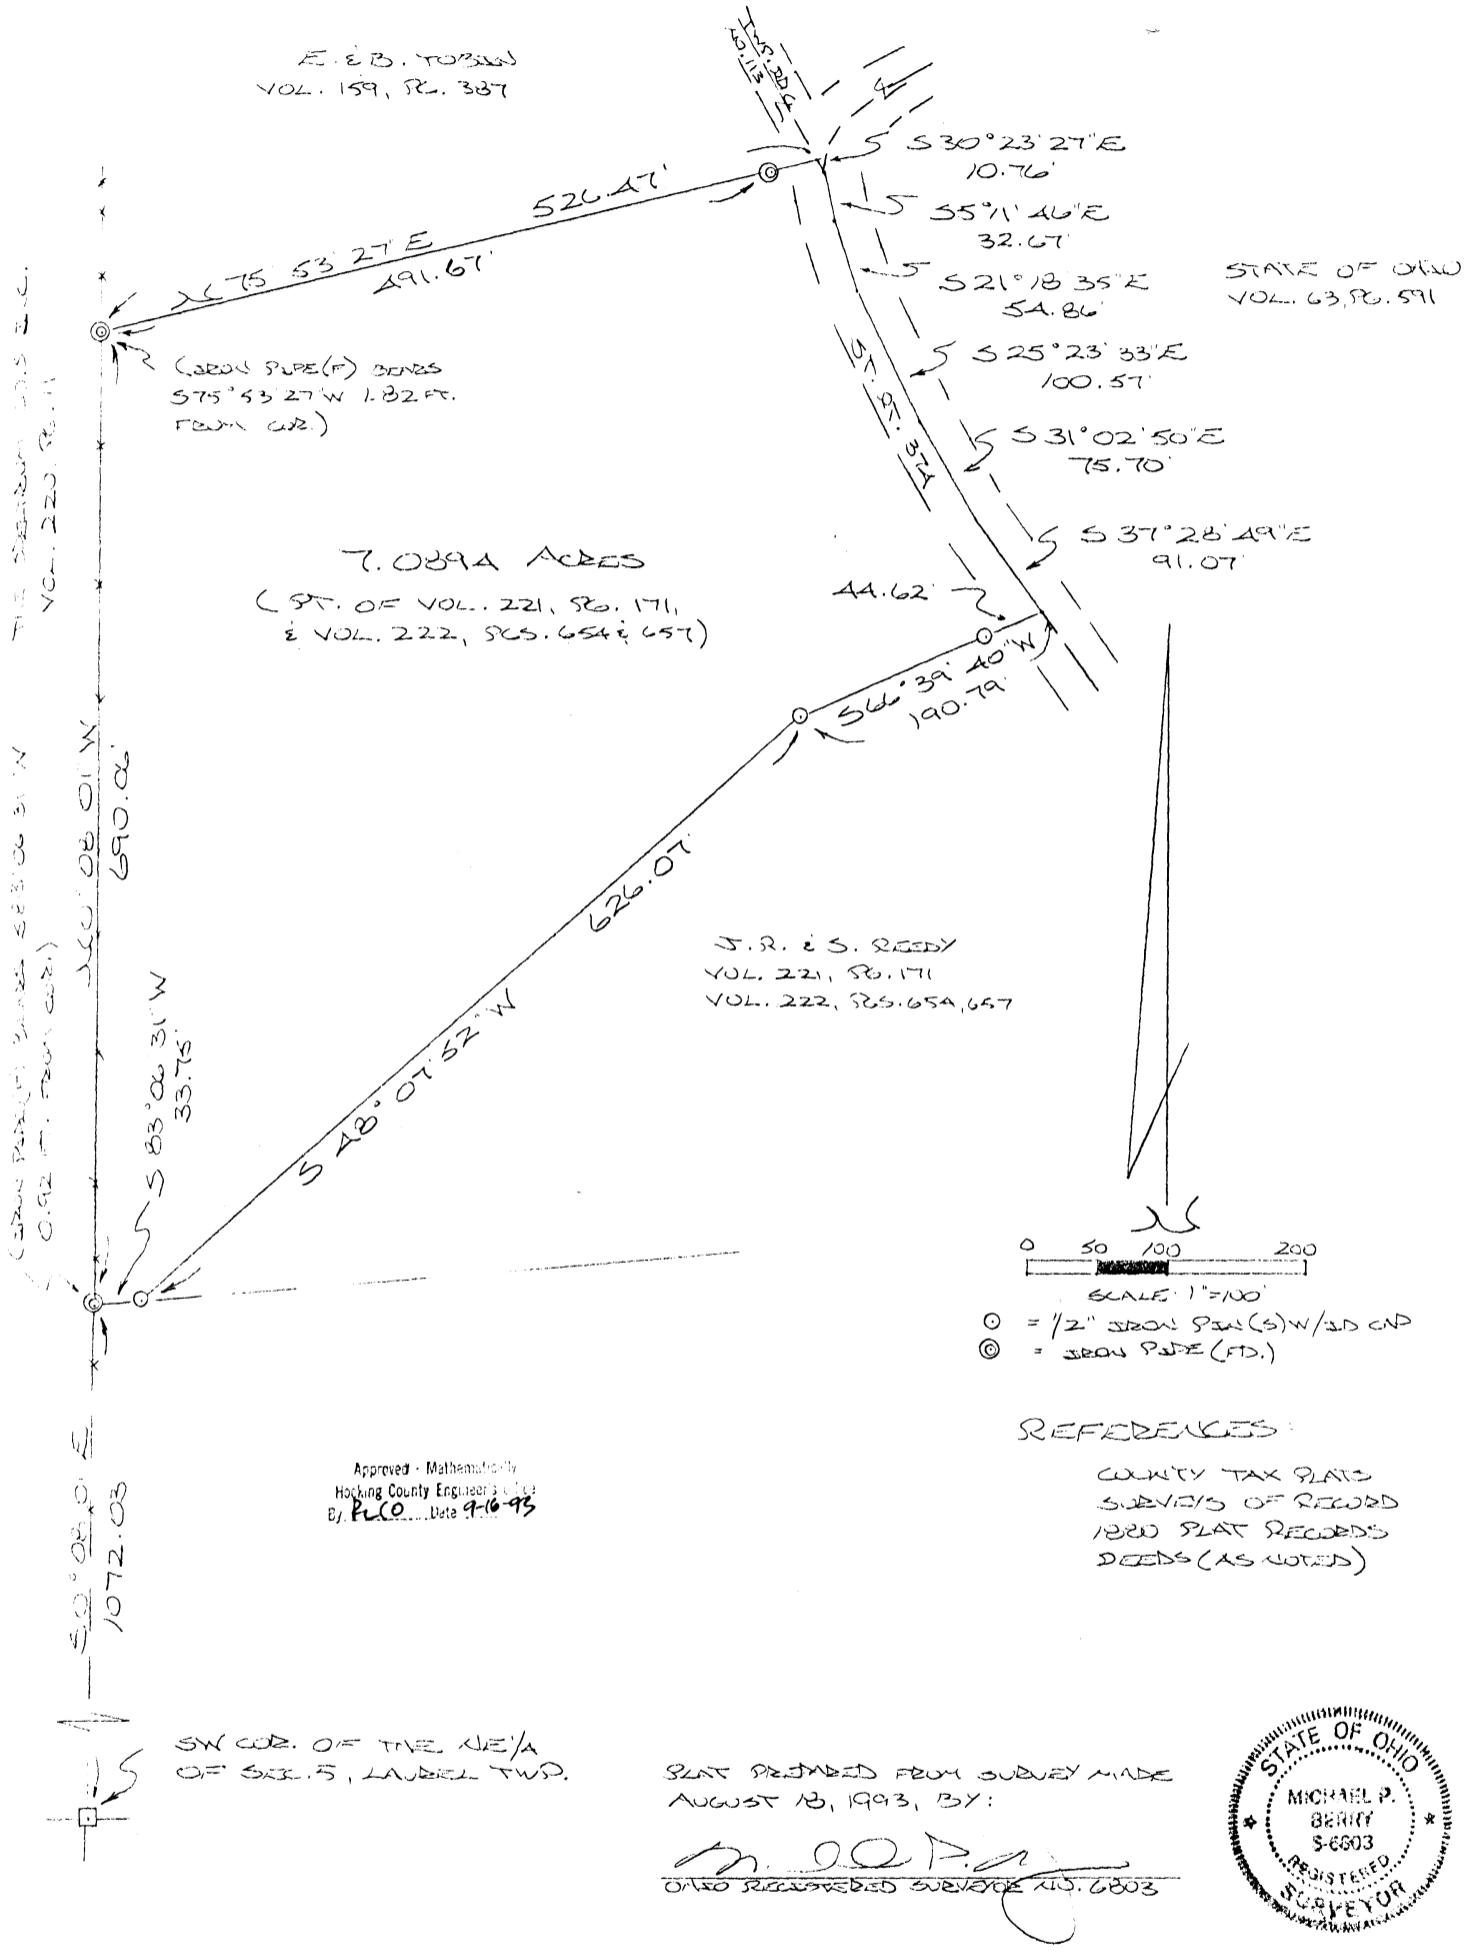 E. & B. TOBIN
VOL. 159, PG. 387
TWP. RD.
W. 113
S 30° 23' 27" E
10.76'
S 5° 11' 46" E
32.67'
S 21° 18' 35" E
54.86'
S 25° 23' 33" E
100.57'
S 31° 02' 50" E
75.70'
S 37° 28' 49" E
91.07'
STATE OF OHIO
VOL. 63, PG. 591
526.47'
N 75° 53' 27" E
491.67'
(IRON PIPE(F) BEARS
S75°53'27"W 1.82 FT.
FROM COR.)
VOL. 220, PG. 11
ST. RT. 374
7.0894 ACRES
(PT. OF VOL. 221, PG. 171,
& VOL. 222, PGS. 654 & 657)
44.62'
S66°39'40"W
190.79'
N 0° 08' 01" W
690.06'
(IRON PIPE(F) BEARS S83°06'31"W
0.92 FT. FROM COR.)
626.07'
S 48° 07' 52" W
J.R. & S. REEDY
VOL. 221, PG. 171
VOL. 222, PGS. 654, 657
S 83° 06' 31" W
33.75'
N
0 50 100 200
SCALE 1"=100'
= 1/2" IRON PIN(S) W/ID CAP
= IRON PIPE (FD.)
REFERENCES:
COUNTY TAX PLATS
SURVEYS OF RECORD
1880 PLAT RECORDS
DEEDS (AS NOTED)
Approved - Mathematically
Hocking County Engineer's Office
By RLCO Date 9-16-93
S 0° 08' 01" E
1072.03
SW COR. OF THE NE1/4
OF SEC. 5, LAUREL TWP.
PLAT PREPARED FROM SURVEY MADE
AUGUST 18, 1993, BY:
OHIO REGISTERED SURVEYOR NO. 6803
STATE OF OHIO
MICHAEL P.
BERRY
S-6803
REGISTERED
SURVEYOR